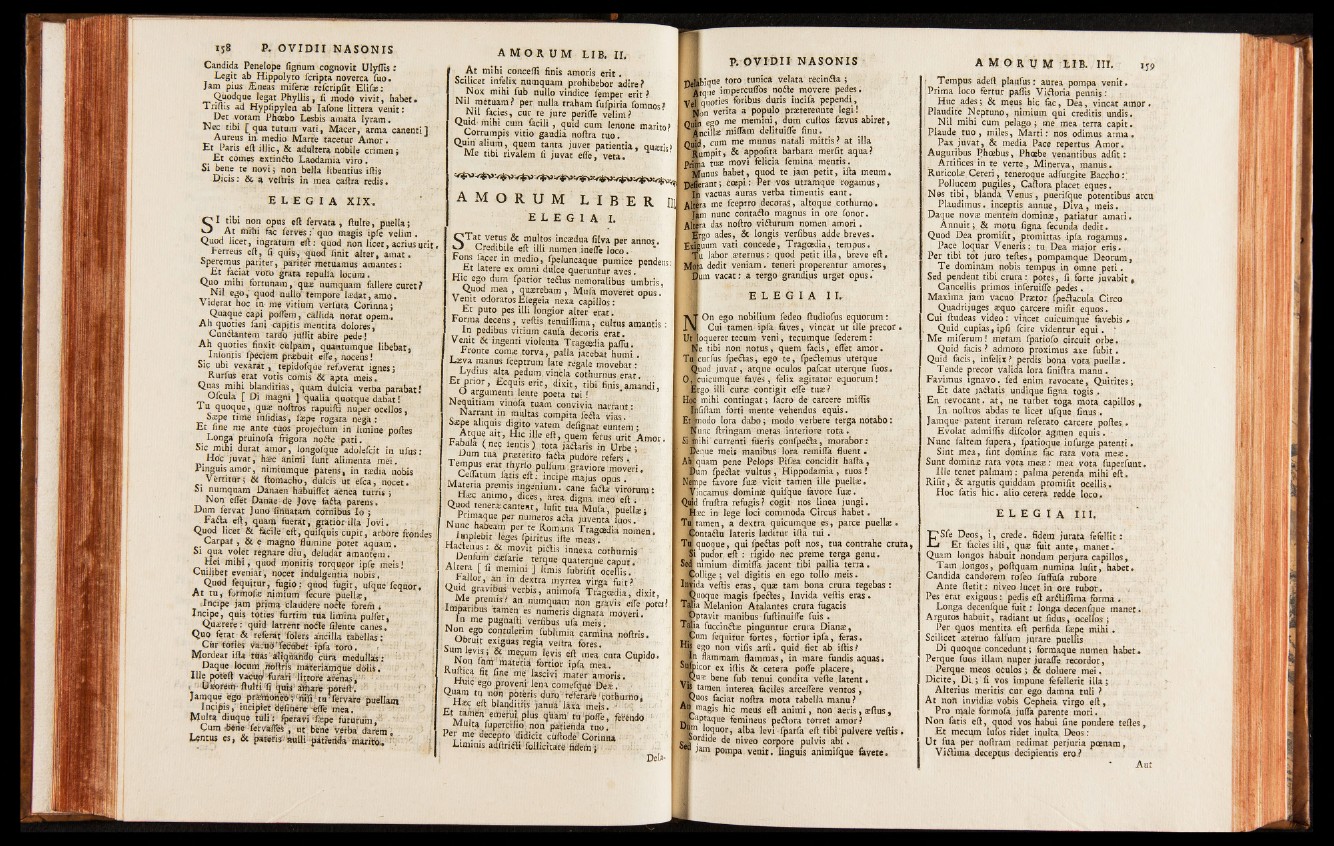 158 P. OVIDII NASONIS
Candida Penelope ſignum cognovit Ulyſſis :
Legit ab Hippolyto ſcripta noverca ſuo.
Jam pius Æneas miſeræ reſcripſit Eliſæ:
Quodque legat Phyllis, ſi modo vivit, habet.
Triſtis ad Hypſipylen ab Iaſone littera venit:
Det votam Phœbo Lesbis amata lyram.
Nec tibi [ qua tutum vati, Macer, arma canenti ]
Aureus in medio Marte tacetur Amor.
Et Paris eſt illic, & adultera nobile crimen;
Et comes extincto Laodamia viro.
Si bene te novi; non bella libentius iſtis
Dicis: & a veſtris in mea caſtra redis.
ELEGIA XIX.
SI tibi non opus eſt ſervata, ſtulte, puella;
At mihi fac ſerves: quo magis ipſe velim.
Quod licet, ingratum eſt: quod non licet, acrius urit.
Ferreus eſt, ſi quis, quod ſinit alter, amat.
Speremus pariter, pariter metuamus amantes:
Et faciat voto grata repulſa locum.
Quo mihi fortunam, quæ numquam fallere curet?
Nil ego, quod nullo tempore lædat, amo.
Viderat hoc in me vitium verſuta Corinna;
Quaque capi poſſem, callida norat opem.
Ah quoties ſani capitis mentita dolores,
Cunctantem tardo juſſit abire pede!
Ah quoties finxit culpam, quantumque libebat,
Inſontis ſpeciem præbuit eſſe, nocens!
Sic ubi vexarat, tepidoſque refoverat ignes;
Rurſus erat votis comis & apta meis.
Quas mihi blanditias, quam dulcia verba parabat!
Oſcula [ Di magni ] qualia quotque dabat!
Tu quoque, quæ noſtros rapuiſti nuper ocellos,
Sæpe time inſidias, ſæpe rogata nega:
Et ſine me ante tuos projectum in limine poſtes
Longa pruinoſa frigora nocte pati.
Sic mihi durat amor, longoſque adoleſcit in uſus:
Hoc juvat, hæc animi ſunt alimenta mei.
Pinguis amor, nimiumque patens, in tædia nobis
Vertitur; & ſtomacho, dulcis ut eſca, nocet.
Si numquam Danaen habuiſſet aenea turris;
Non eſſet Danae de Jove facta parens.
Dum ſervat Juno ſinuatam cornibus Io;
Facta eſt, quam fuerat, gratior illa Jovi.
Quod licet & facile eſt, quiſquis cupit, arbore frondes
Carpat, & e magno flumine potet aquam.
Si qua volet regnare diu, deludat amantem.
Hei mihi, quod monitis torqueor ipſe meis!
Cuilibet eveniat, nocet indulgentia nobis.
Quod ſequitur, fugio: quod fugit, uſque ſequor.
At tu, formoſæ nimium ſecure puellæ,
Incipe jam prima claudere nocte forem.
Incipe, quis toties furtim tua limina pulſet,
Quærere: quid latrent nocte ſilente canes.
Quo ferat & referat ſolers ancilla tabellas:
Cur toties vacuo ſecubet ipſa toro.
Mordeat iſta tuas aliquando cura medullas:
Daque locum noſtris materiamque dolis.
Ille poteſt vacuo furari littore arenas,
Uxorem ſtulti ſi quis amare poteſt.
Jamque ego præmoneo: niſi tu ſervare puellam
Incipis, incipiet deſinere eſſe mea.
Multa diuque tuli: ſperavi ſæpe futurum,
Cum bene ſervaſſes, ut bene verba darem.
Lentus es, & pateris nulli patienda marito.
AMORUM LIB. II.
At mihi conceſſi finis amoris erit.
Scilicet infelix numquam prohibebor adire?
Nox mihi ſub nullo vindice ſemper erit?
Nil metuam? per nulla traham ſuſpiria ſomnos?
Nil facies, cur te jure periſſe velim?
Quid mihi cum facili, quid cum lenone marito?
Corrumpis vitio gaudia noſtra tuo.
Quin alium, quem tanta juvet patientia, quæris?
Me tibi rivalem ſi juvat eſſe, veta.
AMORUM LIBER III.
ELEGIA I.
STat vetus & multos incædua ſilva per annos.
Credibile eſt illi numen ineſſe loco.
Fons ſacer in medio, ſpeluncaque pumice pendens:
Et latere ex omni dulce queruntur aves.
Hic ego dum ſpatior tectus nemoralibus umbris,
Quod mea, quærebam, Muſa moveret opus.
Venit odoratos Elegeia nexa capillos:
Et puto pes illi longior alter erat.
Forma decens, veſtis tenuiſſima, cultus amantis:
In pedibus vitium cauſa decoris erat.
Venit & ingenti violenta Tragœdia paſſu.
Fronte comæ torva, palla jacebat humi.
Læva manus ſceptrum late regale movebat:
Lydius alta pedum vincla cothurnus erat.
Et prior, Ecquis erit, dixit, tibi finis amandi,
O argumenti lente poeta tui!
Nequitiam vinoſa tuam convivia narrant:
Narrant in multas compita ſecta vias.
Sæpe aliquis digito vatem deſignat euntem;
Atque ait, Hic ille eſt, quem ferus urit Amor.
Fabula (nec ſentis) tota jactaris in Urbe;
Dum tua præterito facta pudore refers.
Tempus erat thyrſo pulſum graviore moveri.
Ceſſatum ſatis eſt: incipe majus opus.
Materia premis ingenium. cane facta virorum:
Hæc animo, dices, area digna meo eſt.
Quod teneræ cantent, luſit tua Muſa, puellæ;
Primaque per numeros acta juventa ſuos.
Nunc habeam per te Romana Tragœdia nomen.
Implebit leges ſpiritus iſte meas.
Hactenus: & movit pictis innexa cothurnis
Denſum cæſarie terque quaterque caput.
Altera [ ſi memini ] limis ſubriſit ocellis.
Fallor, an in dextra myrtea virga fuit?
Quid gravibus verbis, animoſa Tragœdia, dixit,
Me premis? an numquam non gravis eſſe potes?
Imparibus tamen es numeris dignata moveri.
In me pugnaſti verſibus uſa meis.
Non ego contulerim ſublimia carmina noſtris.
Obruit exiguas regia veſtra fores.
Sum levis; & mecum levis eſt mea cura Cupido.
Non ſum materia fortior ipſa mea.
Ruſtica ſit ſine me laſcivi mater amoris.
Huic ego proveni lena comeſque Deæ.
Quam tu non poteris duro reſerare cothurno,
Hæc eſt blanditiis janua laxa meis.
Et tamen emerui plus quam tu poſſe, ferendo
Multa ſupercilio non patienda tuo.
Per me decepto didicit cuſtode Corinna
Liminis adſtricti ſollicitare fidem;
Dela-
P. OVIDII NASONIS
Delabique toro tunica velata recincta;
Atque impercuſſos nocte movere pedes.
Vel quoties foribus duris inciſa pependi,
Non verita a populo prætereunte legi!
Quin ego me memini, dum cuſtos ſævus abiret,
Ancillæ miſſam delituiſſe ſinu.
Quid, cum me munus natali mittis? at illa
Rumpit, & appoſita barbara merſit aqua?
Prima tuæ movi felicia ſemina mentis.
Munus habet, quod te jam petit, iſta meum.
Deſierant; cœpi: Per vos utramque rogamus,
In vacuas auras verba timentis eant.
Altera me ſceptro decoras, altoque cothurno.
Jam nunc contacto magnus in ore ſonor.
Altera das noſtro victurum nomen amori.
Ergo ades, & longis verſibus adde breves.
Exiguum vati concede, Tragœdia, tempus.
Tu labor æternus: quod petit illa, breve eſt.
Mota dedit veniam. teneri properentur amores,
Dum vacat: a tergo grandius urget opus.
ELEGIA II.
NOn ego nobilium ſedeo ſtudioſus equorum:
Cui tamen ipſa faves, vincat ut ille precor.
Ut loquerer tecum veni, tecumque ſederem:
Ne tibi non notus, quem facis, eſſet amor.
Tu curſus ſpectas, ego te, ſpectemus uterque
Quod juvat, atque oculos paſcat uterque ſuos.
O, cuicumque faves, felix agitator equorum!
Ergo illi curæ contigit eſſe tuæ?
Hoc mihi contingat; ſacro de carcere miſſis
Inſiſtam forti mente vehendus equis.
Et modo lora dabo; modo verbere terga notabo:
Nunc ſtringam metas interiore rota.
Si mihi currenti fueris conſpecta, morabor:
Deque meis manibus lora remiſſa fluent.
Ah quam pene Pelops Piſæa concidit haſta,
Dum ſpectat vultus, Hippodamia, tuos!
Nempe favore ſuæ vicit tamen ille puellæ.
Vincamus dominæ quiſque favore ſuæ.
Quid fruſtra refugis? cogit nos linea jungi.
Hæc in lege loci commoda Circus habet.
Tu tamen, a dextra quicumque es, parce puellæ.
Contactu lateris læditur iſta tui.
Tu quoque, qui ſpectas poſt nos, tua contrahe crura,
Si pudor eſt: rigido nec preme terga genu.
Sed nimium dimiſſa jacent tibi pallia terra.
Collige; vel digitis en ego tollo meis.
Invida veſtis eras, quæ tam bona crura tegebas:
Quoque magis ſpectes, Invida veſtis eras.
Talia Melanion Atalantes crura fugacis
Optavit manibus ſuſtinuiſſe ſuis.
Talia ſuccinctæ pinguntur crura Dianæ,
Cum ſequitur fortes, fortior ipſa, feras.
His ego non viſis arſi. quid fiet ab iſtis?
In flammam flammas, in mare fundis aquas.
Suſpicor ex iſtis & cetera poſſe placere,
Quæ bene ſub tenui condita veſte latent.
Vis tamen interea faciles arceſſere ventos,
Quos faciat noſtra mota tabella manu?
An magis hic meus eſt animi, non aeris, æſtus,
Captaque femineus pectora torret amor?
Dum loquor, alba levi ſparſa eſt tibi pulvere veſtis.
Sordide de niveo corpore pulvis abi.
Sed jam pompa venit. linguis animiſque favete.
AMORUM LIB. III. 159
Tempus adeſt plauſus: aurea pompa venit.
Prima loco fertur paſſis Victoria pennis:
Huc ades; & meus hic fac, Dea, vincat amor.
Plaudite Neptuno, nimium qui creditis undis.
Nil mihi cum pelago; me mea terra capit.
Plaude tuo, miles, Marti: nos odimus arma.
Pax juvat, & media Pace repertus Amor.
Auguribus Phœbus, Phœbe venantibus adſit:
Artifices in te verte, Minerva, manus.
Ruricolæ Cereri, teneroque adſurgite Baccho:
Pollucem pugiles, Caſtora placet eques.
Nos tibi, blanda Venus, pueriſque potentibus arcu
Plaudimus. inceptis annue, Diva, meis.
Daque novæ mentem dominæ, patiatur amari.
Annuit; & motu ſigna ſecunda dedit.
Quod Dea promiſit, promittas ipſa rogamus.
Pace loquar Veneris: tu Dea major eris.
Per tibi tot juro teſtes, pompamque Deorum,
Te dominam nobis tempus in omne peti.
Sed pendent tibi crura: potes, ſi forte juvabit,
Cancellis primos inſeruiſſe pedes.
Maxima jam vacuo Prætor ſpectacula Circo
Quadrijuges æquo carcere miſit equos.
Cui ſtudeas video: vincet cuicumque favebis.
Quid cupias, ipſi ſcire videntur equi.
Me miſerum! metam ſpatioſo circuit orbe.
Quid facis? admoto proximus axe ſubit.
Quid facis, infelix? perdis bona vota puellæ.
Tende precor valida lora ſiniſtra manu.
Favimus ignavo. ſed enim revocate, Quirites;
Et date jactatis undique ſigna togis.
En revocant. at, ne turbet toga mota capillos,
In noſtros abdas te licet uſque ſinus.
Jamque patent iterum reſerato carcere poſtes.
Evolat admiſſis diſcolor agmen equis.
Nunc ſaltem ſupera, ſpatioque inſurge patenti.
Sint mea, ſint dominæ fac rata vota meæ.
Sunt dominæ rata vota meæ: mea vota ſuperſunt.
Ille tenet palmam: palma petenda mihi eſt.
Riſit, & argutis quiddam promiſit ocellis.
Hoc ſatis hic. alio cetera redde loco.
ELEGIA III.
ESſe Deos, i, crede. fidem jurata fefellit:
Et facies illi, quæ fuit ante, manet.
Quam longos habuit nondum perjura capillos,
Tam longos, poſtquam numina luſit, habet.
Candida candorem roſeo ſuffuſa rubore
Ante ſtetit: niveo lucet in ore rubor.
Pes erat exiguus: pedis eſt arctiſſima forma.
Longa decenſque fuit: longa decenſque manet.
Argutos habuit, radiant ut ſidus, ocellos;
Per quos mentita eſt perfida ſæpe mihi.
Scilicet æterno falſum jurare puellis
Di quoque concedunt; formaque numen habet.
Perque ſuos illam nuper juraſſe recordor,
Perque meos oculos; & doluere mei.
Dicite, Di; ſi vos impune fefellerit illa;
Alterius meritis cur ego damna tuli?
At non invidiæ vobis Cepheia virgo eſt,
Pro male formoſa juſſa parente mori.
Non ſatis eſt, quod vos habui ſine pondere teſtes,
Et mecum luſos ridet inulta Deos:
Ut ſua per noſtram redimat perjuria pœnam,
Victima deceptus decipientis ero?
Aut